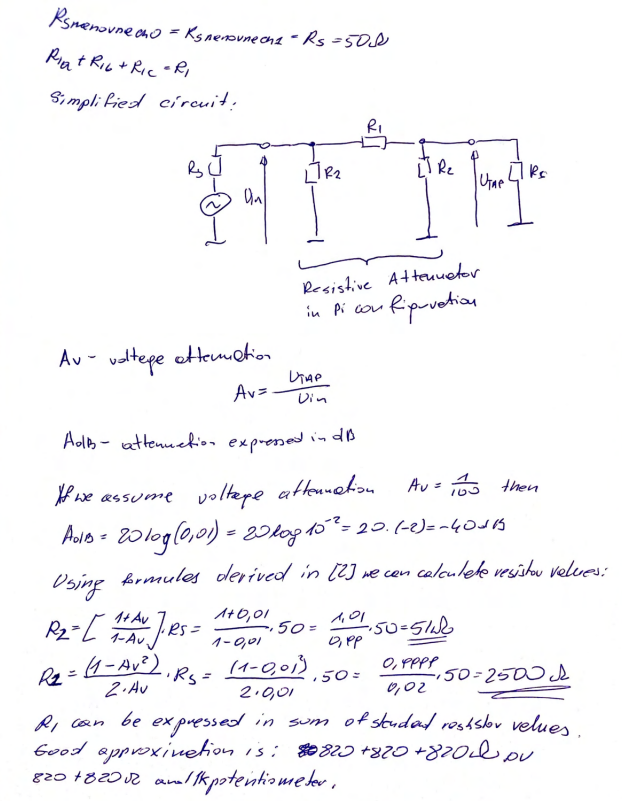 = Rs = 50Ω
R1a + R1b + R1c = R1
Simplified circuit:
R1
Rs
Uin
R2
R2
UTAP
Rs
Resistive Attenuator
in Pi configuration
Av - voltage attenuation
Av = UTAP / Uin
AdB - attenuation expressed in dB
If we assume voltage attenuation Av = 1/100 then
AdB = 20log(0,01) = 20log10⁻² = 20.(-2) = -40dB
Using formules derived in [2] we can calculate resistor values:
R2 = [1+Av / 1-Av].Rs = 1+0,01 / 1-0,01 .50 = 1,01 / 0,99 .50 = 51Ω
R1 = (1-Av²) / 2.Av .Rs = (1-0,01²) / 2.0,01 .50 = 0,9999 / 0,02 .50 = 2500Ω
R1 can be expressed in sum of values.
Good approximation is: 820 + 820 + 820Ω or
820 + 820Ω and 1k potentiometer.